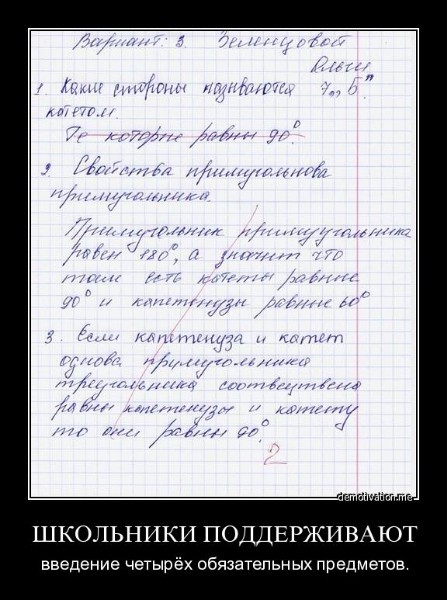 Вариант: 3. Зеленцовой
Ольги
1. Какие стороны называются 7 „Б"
котетом.
Те которые равны 90°.
2. Свойства примугольнова
примугольника.
Примугольник примуугольника
равен 180°, а значит что
там есть катеты равные
90° и капетенузы равные 60°
3. Если капетенуза и катет
однова примугольника
треугольника соотвецтвено
равны капетенузы и катету
то они равны 90°.
2
demotivation.me
ШКОЛЬНИКИ ПОДДЕРЖИВАЮТ
введение четырёх обязательных предметов.